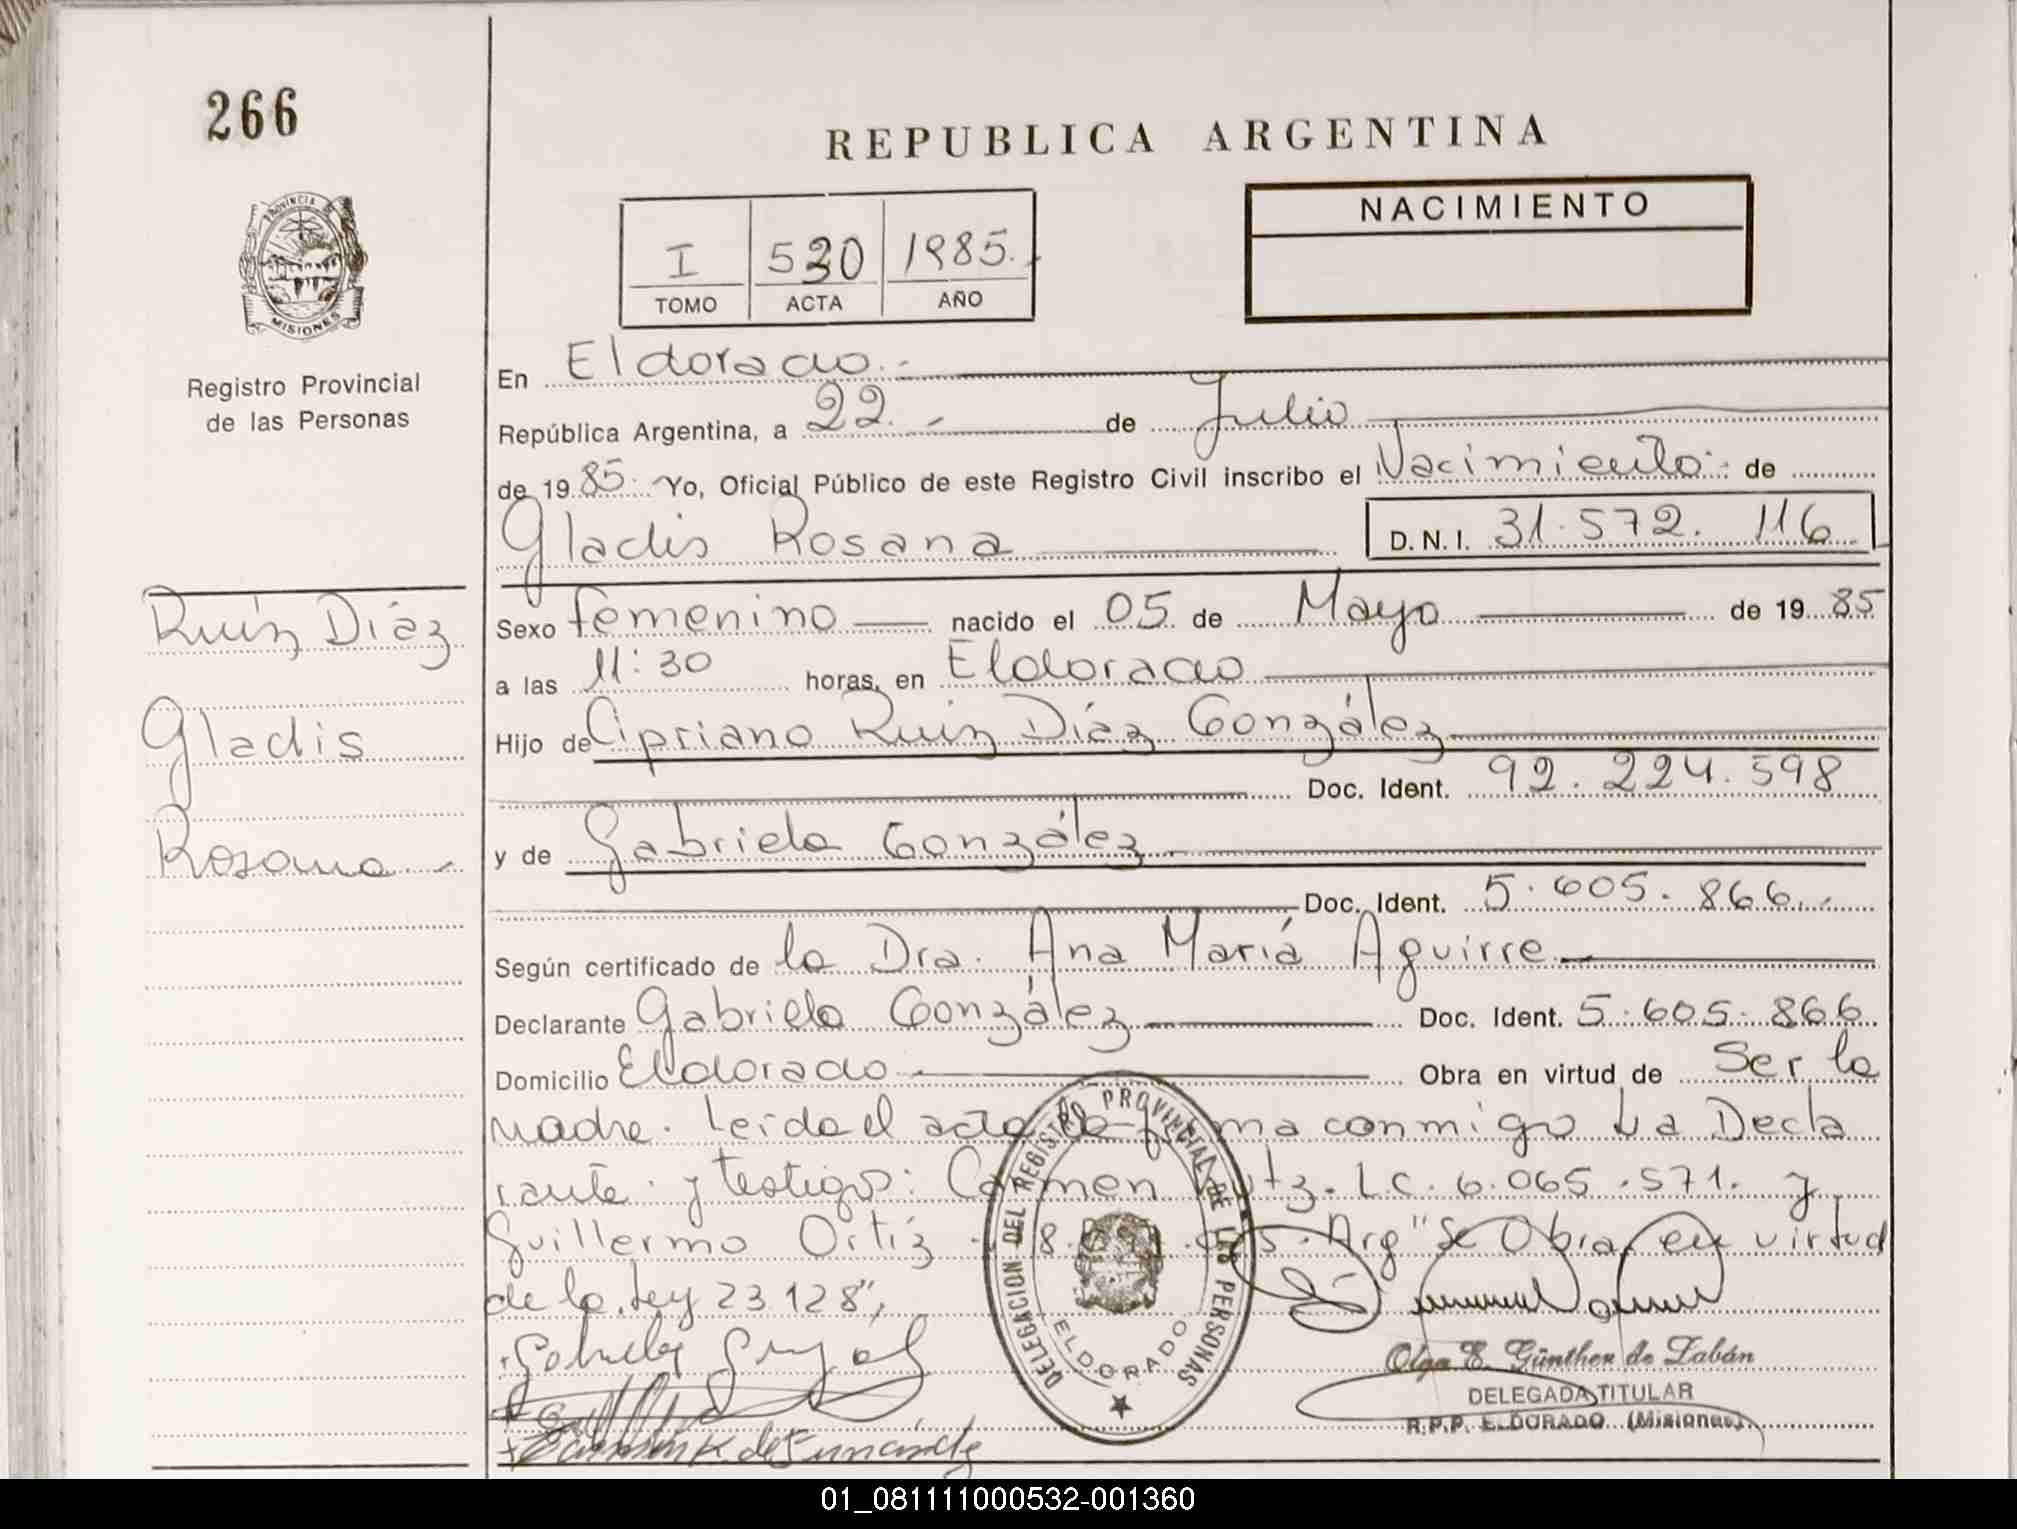 266
REPUBLICA ARGENTINA
PROVINCIA DE
MISIONES
Registro Provincial
de las Personas
I 530 1985.
TOMO ACTA AÑO
NACIMIENTO
En Eldorado.-
República Argentina, a 22.- de Julio
de 1985. Yo, Oficial Público de este Registro Civil inscribo el Nacimiento.- de
Gladis Rosana D.N.I. 31.572.116
Ruíz Díaz
Gladis
Rosana.-
Sexo femenino nacido el 05 de Mayo de 1985
a las 11:30 horas, en Eldorado
Hijo de Cipriano Ruíz Díaz González
Doc. Ident. 92.224.598
y de Gabriela González
Doc. Ident. 5.605.866.-
Según certificado de la Dra. Ana María Aguirre
Declarante Gabriela González Doc. Ident. 5.605.866
Domicilio Eldorado Obra en virtud de Ser la
madre. Leída el acta la firma conmigo La Decla
rante y testigos: Carmen L.C. 6.065.571. y
Guillermo Ortíz Arg "Se Obra en virtud
de la Ley 23.128",
DELEGACION DEL REGISTRO PROVINCIAL DE LAS PERSONAS
ELDORADO
Olga E. Günther de Zabán
DELEGADA TITULAR
R.P.P. ELDORADO (Misiones)
01_081111000532-001360